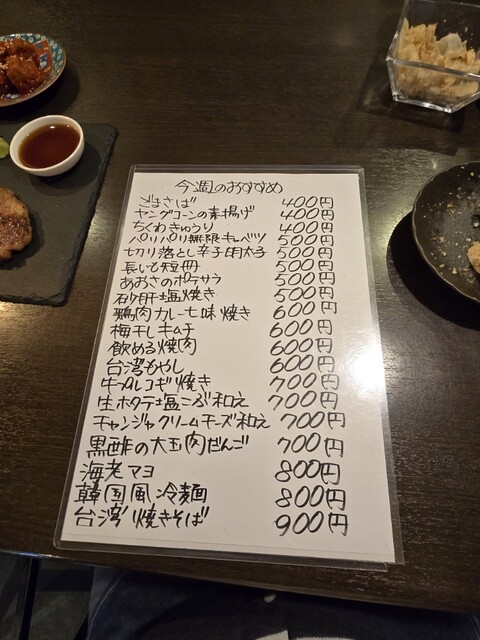 今週のおすすめ
ごまさば 400円
ヤングコーンの素揚げ 400円
ちくわきゅうり 400円
パリパリ無限キャベツ 500円
切り落とし辛子明太子 500円
長いも短冊 500円
あおさのポテサラ 500円
砂肝塩焼き 500円
鴨肉カレー七味焼き 600円
梅干しキムチ 600円
飲める焼肉 600円
台湾もやし 600円
牛プルコギ焼き 700円
生ホタテ塩こぶ和え 700円
チャンジャクリームチーズ和え 700円
黒酢の大玉肉だんご 700円
海老マヨ 800円
韓国風冷麺 800円
台湾焼きそば 900円